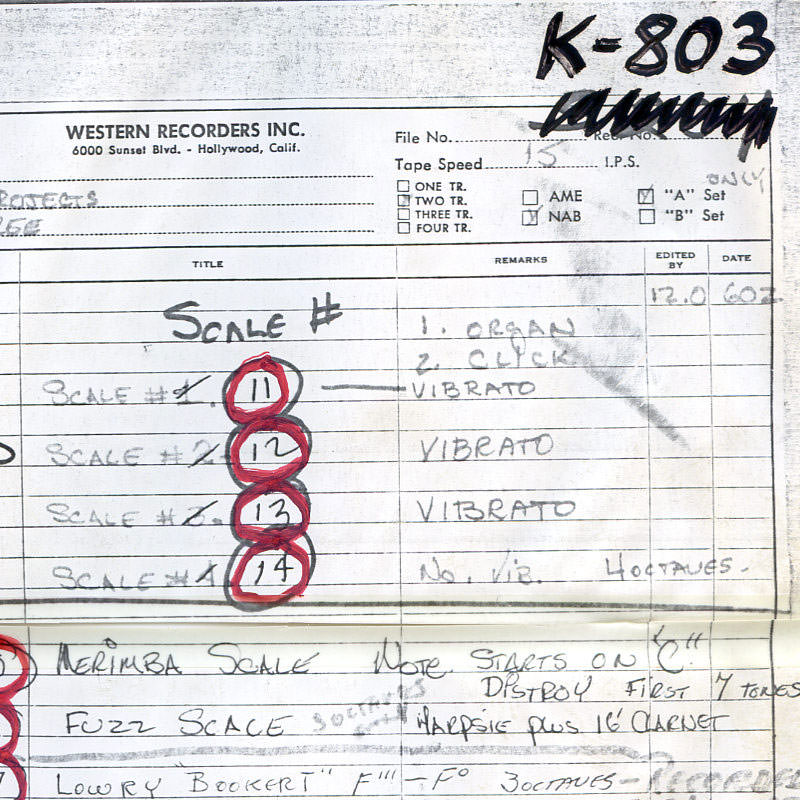 K-803
WESTERN RECORDERS INC.
6000 Sunset Blvd. - Hollywood, Calif.
File No. Rec. No.
Tape Speed 15 I.P.S.
ONLY
ONE TR.
TWO TR. AME "A" Set
THREE TR. NAB "B" Set
FOUR TR.
ROJECTS
TITLE REMARKS EDITED BY DATE
12.0 602
SCALE #
1. ORGAN
2. CLICK
SCALE #1. 11 VIBRATO
SCALE #2. 12 VIBRATO
SCALE #3. 13 VIBRATO
SCALE #4. 14 No. Vib. 4 OCTAVES.
MERIMBA SCALE NOTE STARTS ON "C"
DISTROY FIRST 7 TONES
FUZZ SCALE 3 OCTAVES HARPSIE plus 16' CLARNET
LOWRY "BOOKERT" F''' - F° 3 OCTAVES -